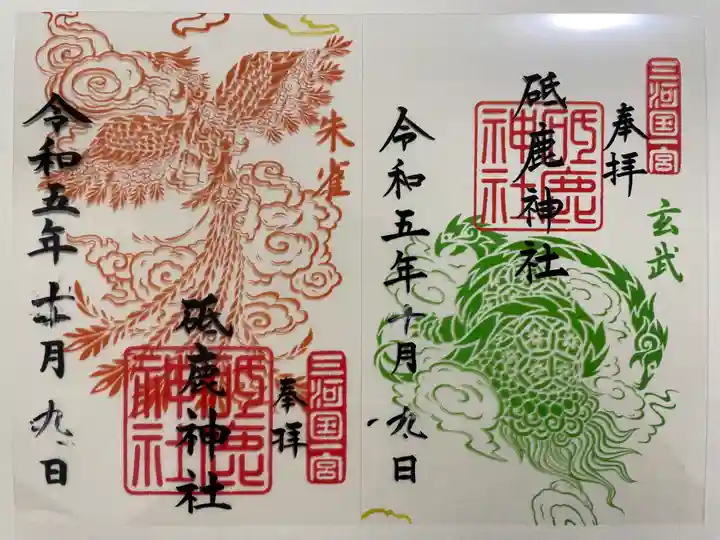 三河国一宮
奉拝
玄武
砥鹿神社
砥鹿神社
令和五年十月九日
朱雀
三河国一宮
奉拝
砥鹿神社
砥鹿神社
令和五年 月九日